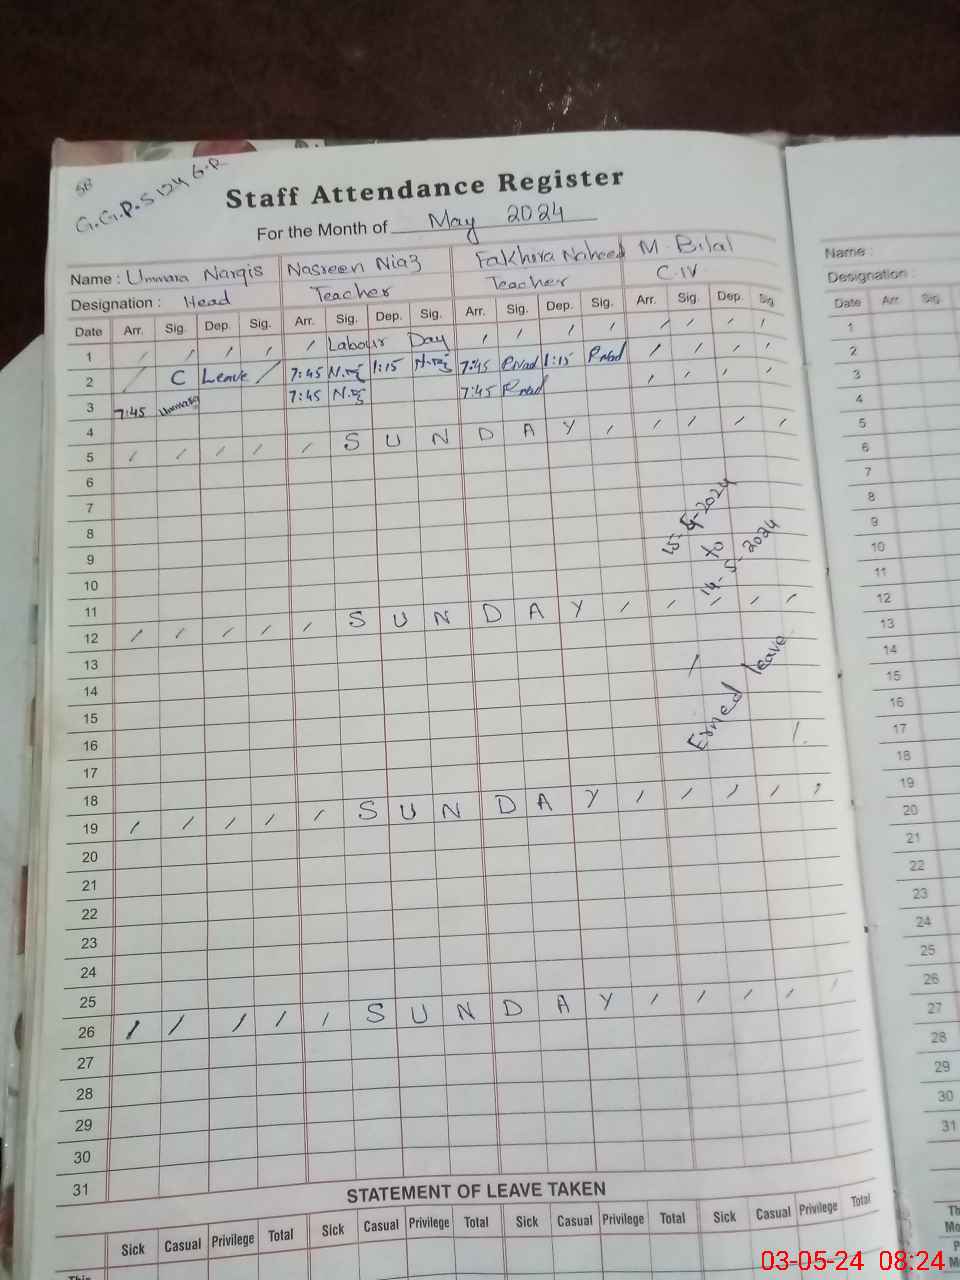 SB
G.G.P.S 124 G.R
Staff Attendance Register
For the Month of May 2024
Name : Ummara Nargis Nasreen Niaz Fakhira Naheed M. Bilal
Designation : Head Teacher Teacher C.IV
Date Arr. Sig. Dep. Sig. Arr. Sig. Dep. Sig. Arr. Sig. Dep. Sig. Arr. Sig. Dep. Sig
1 / / / / / Labour Day / / / / / / / /
2 / C Leave / 7:45 1:15 7:45 1:15 / / / /
3 7:45 7:45 7:45 / / / /
4
5 / / / / / S U N D A Y / / / / /
6
7
8
9
10
11
12 / / / / / S U N D A Y / / / / /
13
14
15
16
17
18
19 / / / / / S U N D A Y / / / / /
20
21
22
23
24
25
26 / / / / / S U N D A Y / / / / /
27
28
29
30
31
to
14-5-2024
Erned leave
STATEMENT OF LEAVE TAKEN
Sick Casual Privilege Total Sick Casual Privilege Total Sick Casual Privilege Total Sick Casual Privilege Total
Name :
Designation :
Date Arr. Sig.
1
2
3
4
5
6
7
8
9
10
11
12
13
14
15
16
17
18
19
20
21
22
23
24
25
26
27
28
29
30
31
03-05-24 08:24